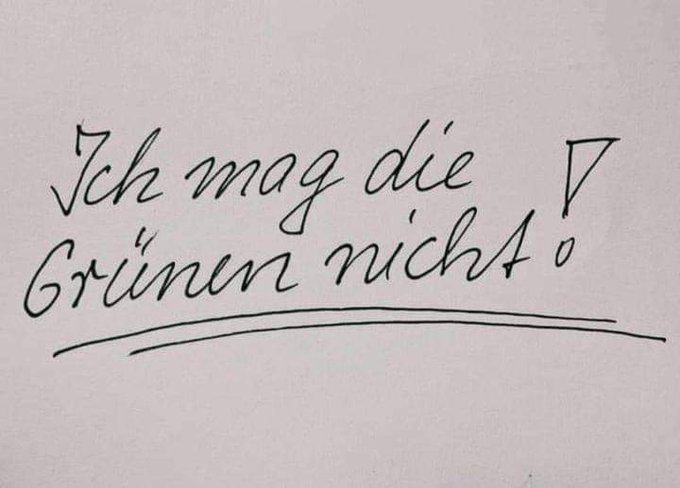 Ich mag die
Grünen nicht!